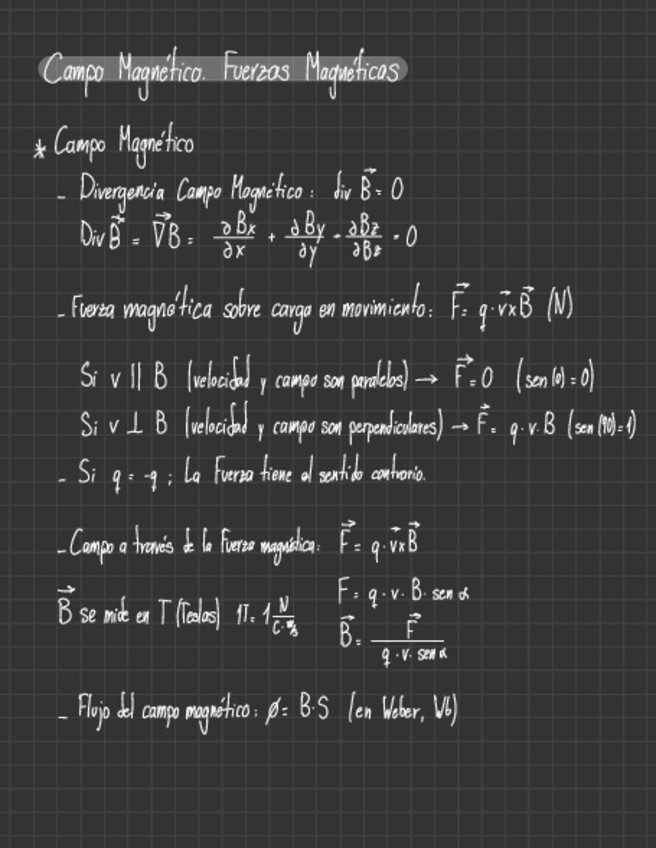 Campo Magnético. Fuerzas Magnéticas
* Campo Magnético
- Divergencia Campo Magnético: div B⃗ = 0
Div B⃗ = ∇⃗B = ∂Bx/∂x + ∂By/∂y - ∂Bz/∂Bz = 0
- Fuerza magnética sobre carga en movimiento: F⃗ = q · v⃗ x B⃗ (N)
Si v || B (velocidad y campo son paralelos) → F⃗ = 0 (sen (0) = 0)
Si v ⊥ B (velocidad y campo son perpendiculares) → F⃗ = q · v · B (sen (90) = 1)
- Si q = -q ; La Fuerza tiene el sentido contrario.
- Campo a través de la Fuerza magnética: F⃗ = q · v⃗ x B⃗
F = q · v · B · sen α
B⃗ se mide en T (Teslas) 1T = 1 N/C·m/s
B⃗ = F⃗/q · v · sen α
- Flujo del campo magnético: ø = B · S (en Weber, Wb)